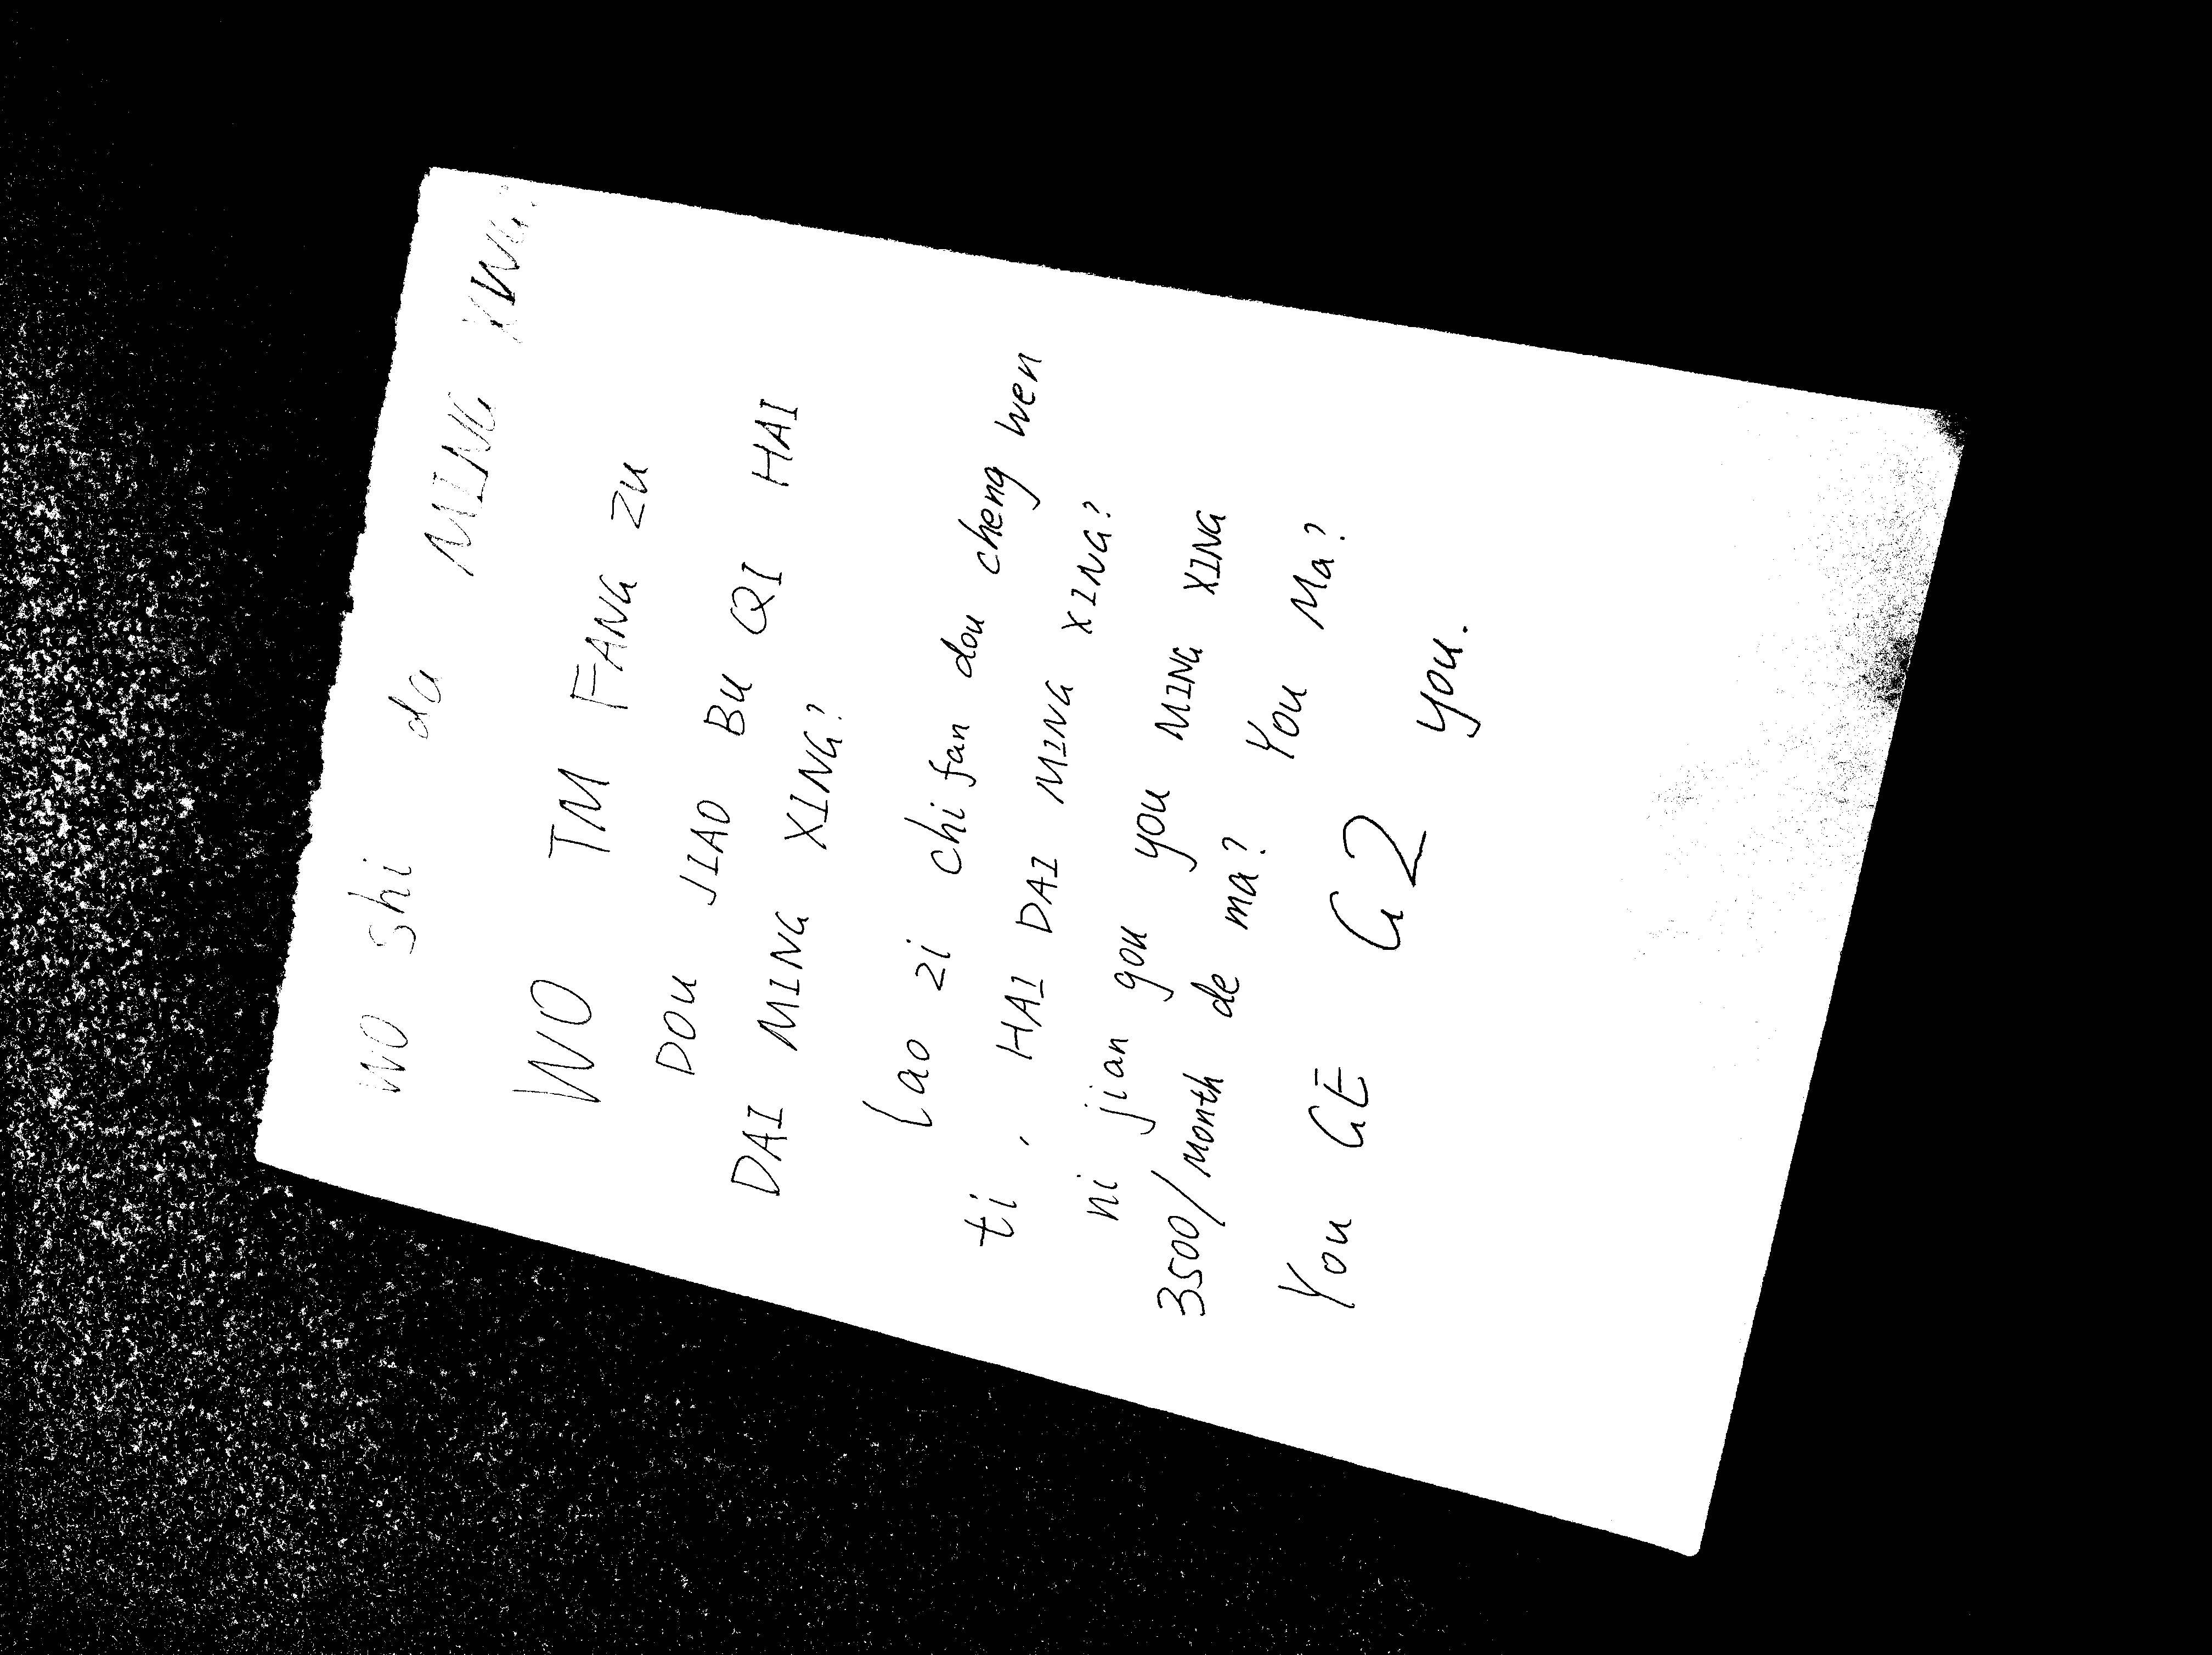 wo shi da MING XING.
WO TM FANG ZU
DOU JIAO BU QI HAI
DAI MING XING?
lao zi chi fan dou cheng wen
ti, HAI DAI MING XING?
ni jian gou you MING XING
3500/month de ma? You Ma?
You GE G2 you.